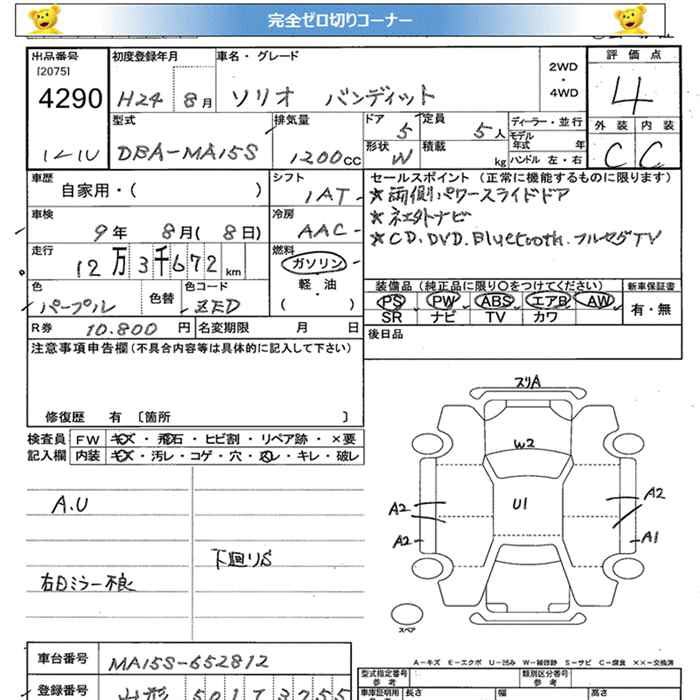 完全ゼロ切りコーナー
出品番号 初度登録年月 車名・グレード 評価点
[2075]
4290 H24 8月 ソリオ バンディット 2WD・4WD 4
型式 排気量 ドア 定員 ディーラー・並行 外装 内装
DBA-MA15S 1200cc 5 5人 モデル年式 年 C C
形状 W 積載 kg ハンドル 左・右
車歴 シフト セールスポイント (正常に機能するものに限ります)
自家用・( ) 1AT ★両側パワースライドドア
車検 冷房 ★社外ナビ
9年 8月( 8日) AAC ★CD.DVD.Bluetooth.フルセグTV
走行 燃料
12万3千672km ガソリン
軽・油
( )
色 色替 色コード 装備品 (純正品に限り〇をつけてください) 新車保証書
パープル ZED PS PW ABS エアB AW 有・無
SR ナビ TV カワ
R券 10.800円 名変期限 月 日 後日品
注意事項申告欄(不具合内容等は具体的に記入して下さい)
修復歴 有 [箇所 ]
検査員 FW キズ・飛石・ヒビ割・リペア跡・×要
記入欄 内装 キズ・汚レ・コゲ・穴・スレ・キレ・破レ
A.U
下回りS
右ミラー不良
スリA
W2
U1
A2 A2
A2 A1
スペア
車台番号 MA15S-652812
A-キズ E-エクボ U-凹み W-補修跡 S-サビ C-腐食 ××-交換済
型式指定番号 類別区分番号
参考 参考
登録番号 山形 501 車庫証明用 長さ 幅 高さ